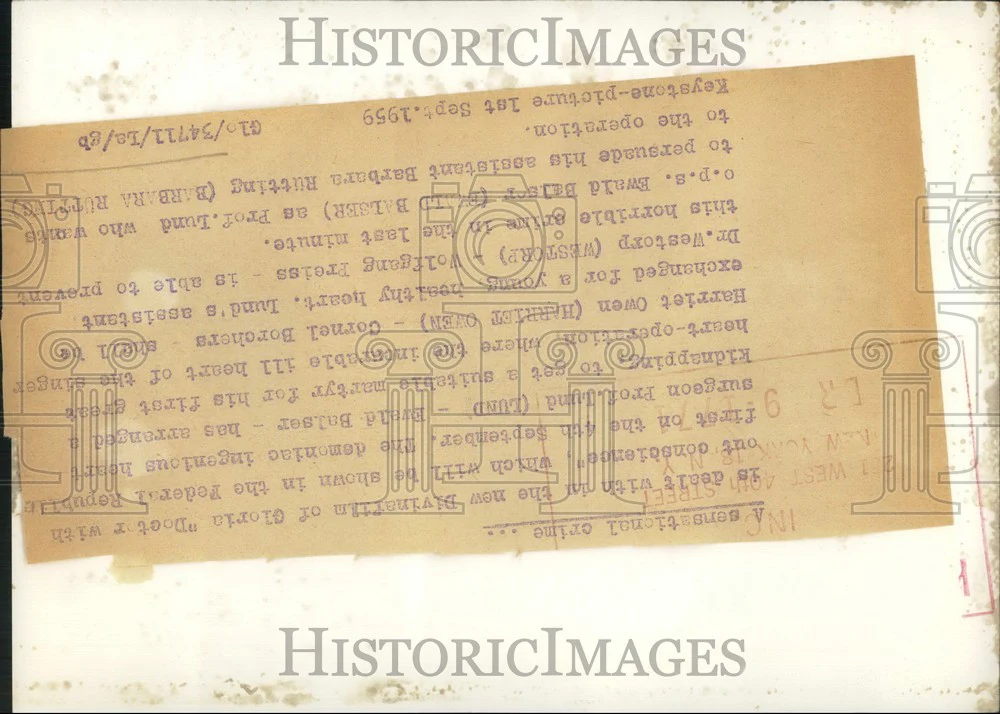 HISTORICIMAGES
A sensational crime ...
is dealt with in the new Divinafilm of Gloria "Doctor with
out conscience", which will be shown in the Federal Republic
first on the 4th September. The demoniac ingenious heart
surgeon Prof.Lund (LUND) - Ewald Balser - has arranged a
kidnapping, to get a suitable martyr for his first great
heart-operation, where the incurable ill heart of the singer
Harriet Owen (HARRIET OWEN) - Cornel Borchers - shall be
exchanged for a young, healthy heart. Lund's assistant
Dr.Westorp (WESTORP) - Wolfgang Preiss - is able to prevent
this horrible crime in the last minute.
o.p.s. Ewald Balser (EWALD BALSER) as Prof.Lund who wants
to persuade his assistant Barbara Rütting (BARBARA RÜTTING)
to the operation.
Keystone-picture 1st Sept.1959
Glo/34711/La/gb
INC
WEST 40th STREET
NEW YORK 18, N.Y.
HISTORICIMAGES